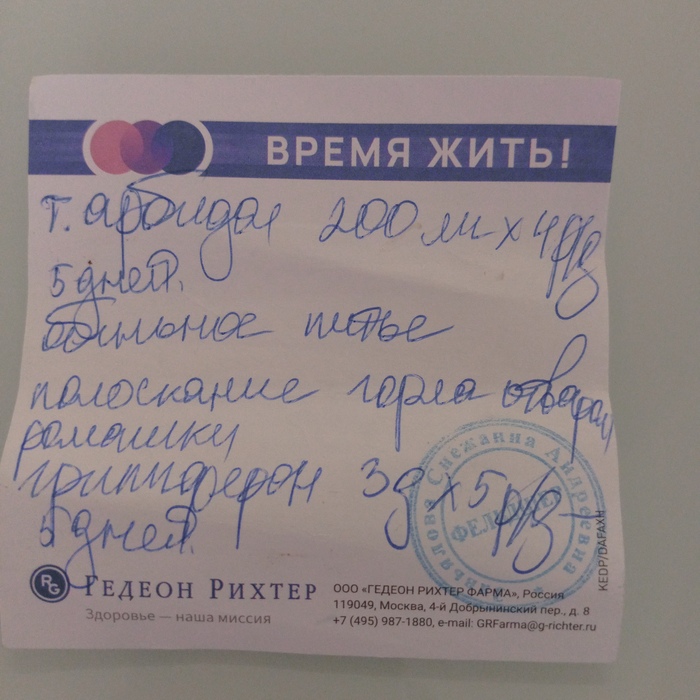 ВРЕМЯ ЖИТЬ!
т. арбидол 200 мг х 4 р/д
5 дней.
обильное питье
полоскание горла отваром
ромашки
гриппферон 3д х 5 р/д
5 дней.
Снежанна Андреевна
ФЕЛЬДШЕР
RG ГЕДЕОН РИХТЕР
Здоровье — наша миссия
ООО «ГЕДЕОН РИХТЕР ФАРМА», Россия
119049, Москва, 4-й Добрынинский пер., д. 8
+7 (495) 987-1880, e-mail: GRFarma@g-richter.ru
KEDP/DAFAXH